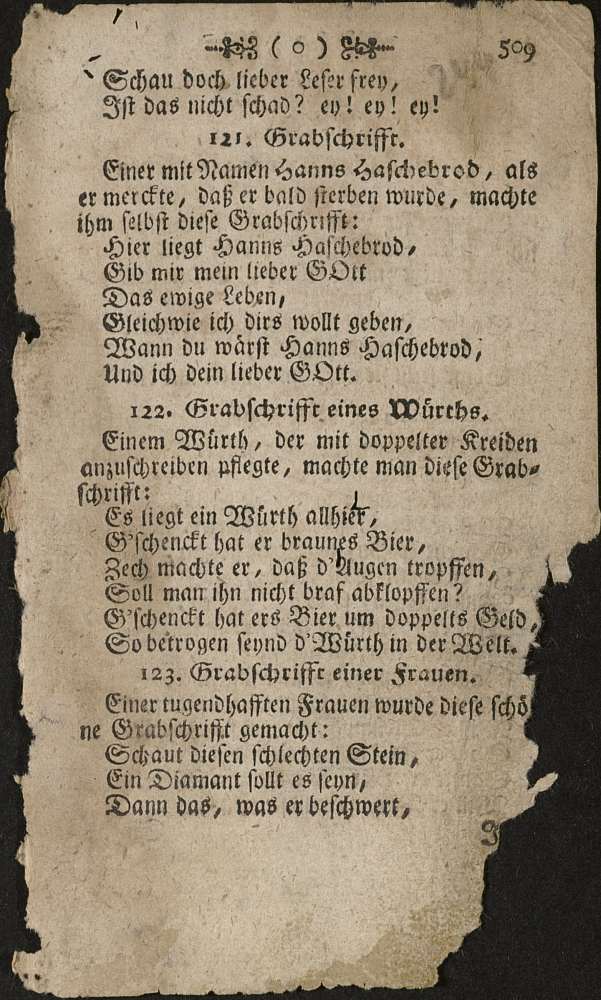 ( o ) 509
Schau doch lieber Leser frey,
Ist das nicht schad? ey! ey! ey!
121. Grabschrifft.
Einer mit Namen Hanns Haschebrod, als
er merckte, daß er bald sterben wurde, machte
ihm selbst diese Grabschrifft:
Hier liegt Hanns Haschebrod,
Gib mir mein lieber GOtt
Das ewige Leben,
Gleichwie ich dirs wollt geben,
Wann du wärst Hanns Haschebrod,
Und ich dein lieber GOtt.
122. Grabschrifft eines Würths.
Einem Würth, der mit doppelter Kreiden
anzuschreiben pflegte, machte man diese Grab-
schrifft:
Es liegt ein Würth allhier,
G'schenckt hat er braunes Bier,
Zech machte er, daß d'Augen tropffen,
Soll man ihn nicht braf abklopffen?
G'schenckt hat ers Bier um doppelts Geld,
So betrogen seynd d'Würth in der Welt.
123. Grabschrifft einer Frauen.
Einer tugendhafften Frauen wurde diese schö
ne Grabschrifft gemacht:
Schaut diesen schlechten Stein,
Ein Diamant sollt es seyn,
Dann das, was er beschwert,